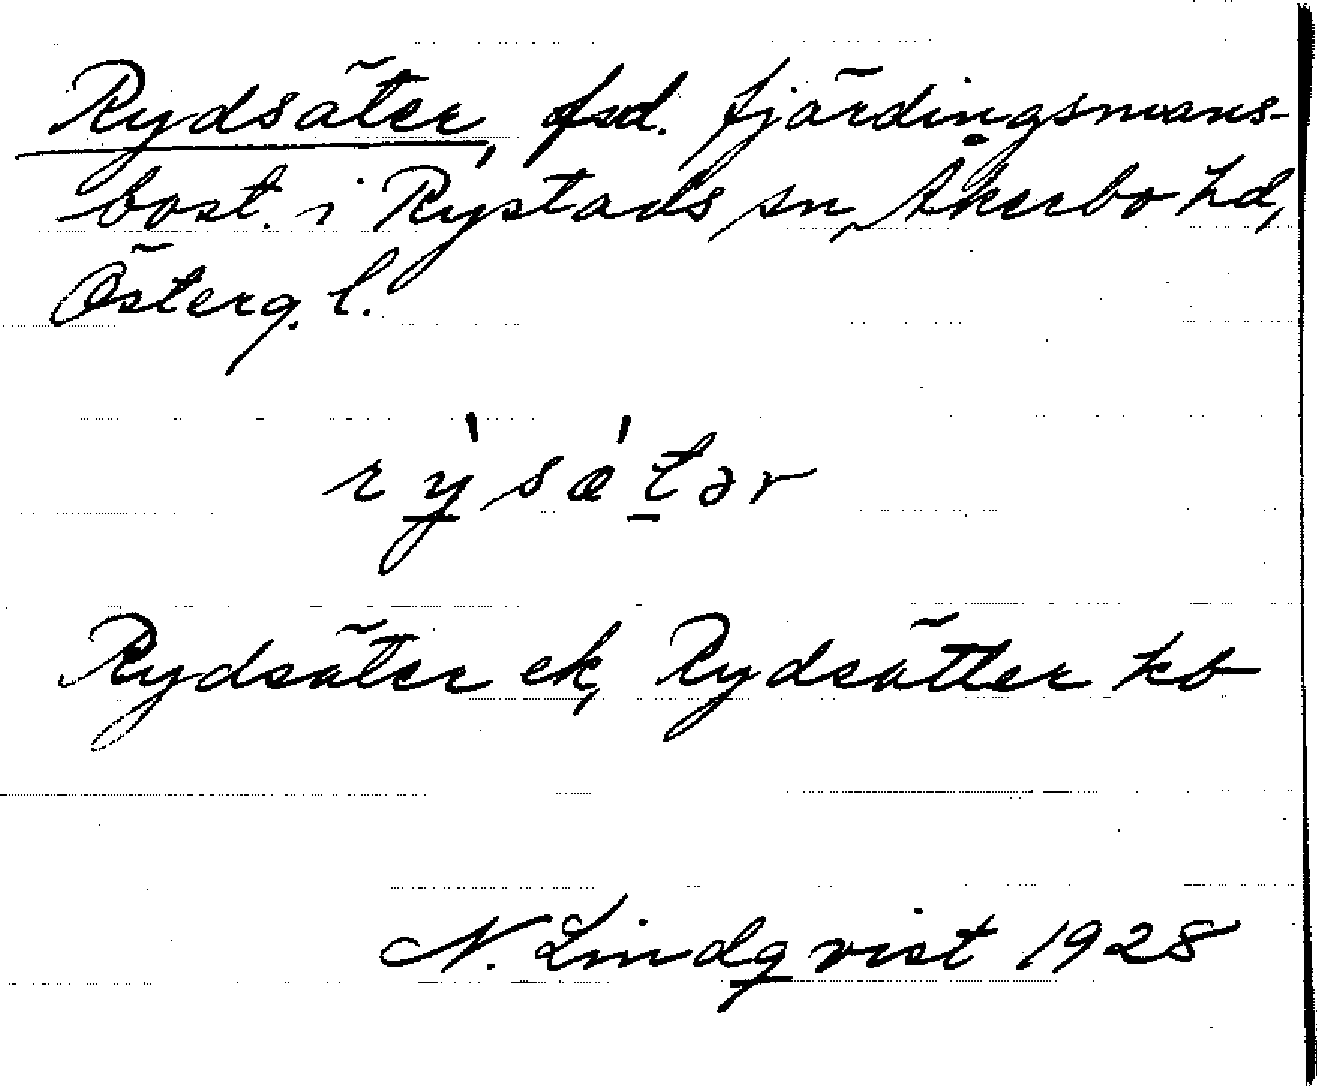 Rydsäter, fsd. fjärdingsmans-
bost. i Rystads sn, Åkerbo hd,
Österg. l.
rỳsǽtər
Rydsäter ek, Rydsätter kb
N. Lindqvist 1928